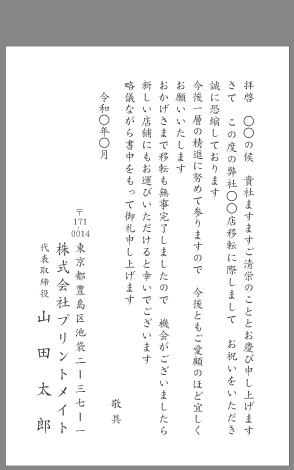 拝啓　〇〇の候　貴社ますますご清栄のこととお慶び申し上げます
さて　この度の弊社〇〇店移転に際しまして　お祝いをいただき
誠に恐縮しております
今後一層の精進に努めて参りますので　今後ともご愛顧のほど宜しく
お願いいたします
おかげさまで移転も無事完了しましたので　機会がございましたら
新しい店舗にもお運びいただけると幸いでございます
略儀ながら書中をもって御礼申し上げます
敬具
令和〇年〇月
〒171-0014
東京都豊島区池袋二ー三七ー一
株式会社プリントメイト
代表取締役　山田太郎